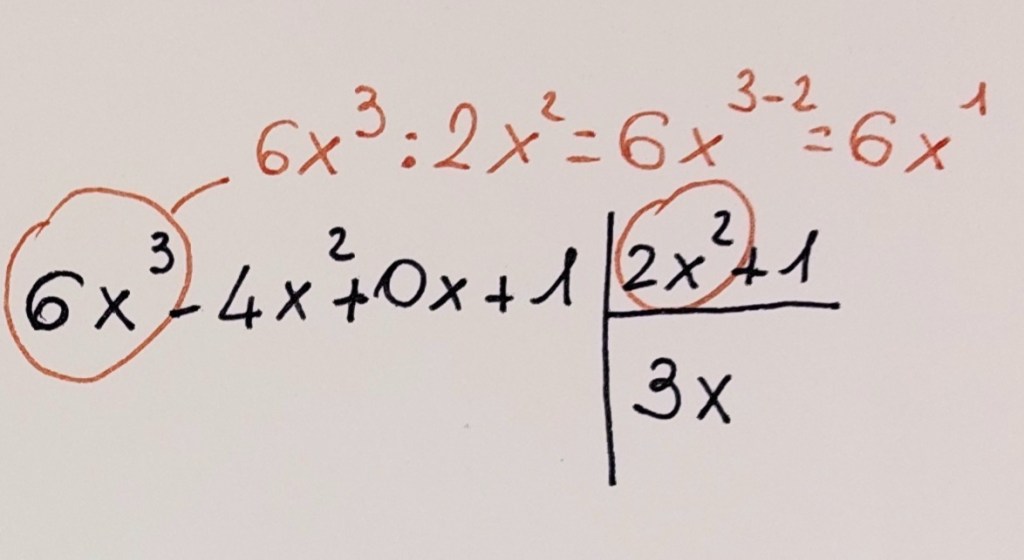 6x³:2x²=6x³⁻²=6x¹
6x³-4x²+0x+1 2x²+1
3x